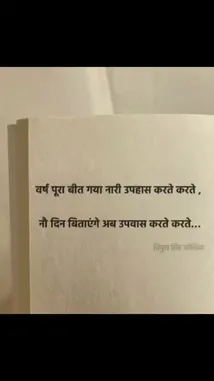 वर्ष पूरा बीत गया नारी उपहास करते करते ,
नौ दिन बिताएंगे अब उपवास करते करते...